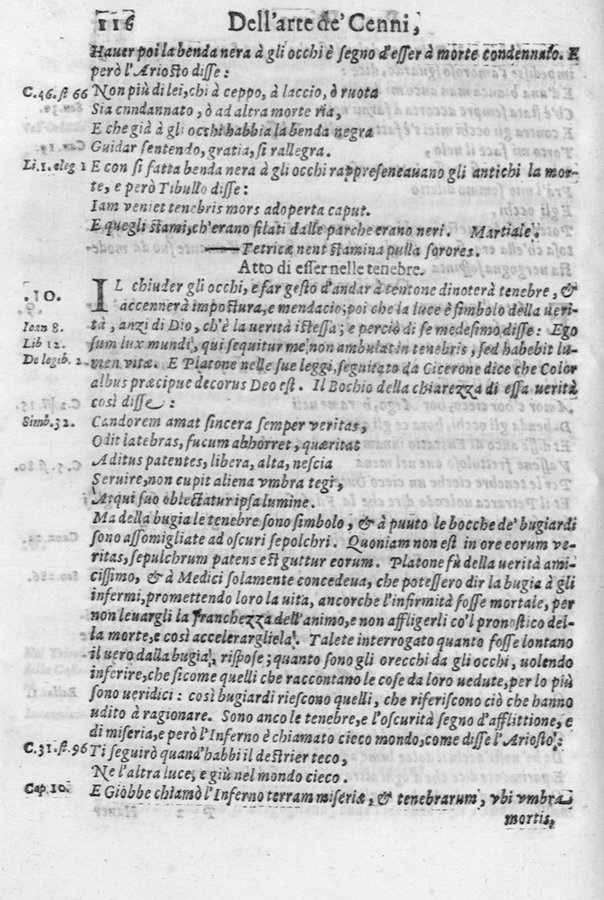 116
Dell'arte de' Cenni,
Hauer poi la benda nera à gli occhi è segno d'esser à morte condennato. E
però l'Ariosto disse:
C.46. st 66 Non più di lei, chi à ceppo, à laccio, ò ruota
Sia cnndannato, ò ad altra morte ria,
E che già à gli occhi habbia la benda negra
Guidar sentendo, gratia, si rallegra.
Li.1. eleg 1 E con si fatta benda nera à gli occhi rappreseneauano gli antichi la mor-
te, e però Tibullo disse:
Iam veniet tenebris mors adoperta caput.
E quegli stami, ch'erano filati dalle parche erano neri. Martiale.
Tetricæ nent stamina pulla sorores.
Atto di esser nelle tenebre.
.10. IL chiuder gli occhi, e far gesto d'andar à tentone dinoterà tenebre, &
accennerà impostura, e mendacio; poi che la luce è simbolo della ueri-
Ioan 8. tà, anzi di Dio, ch'è la uerità istessa; e perciò di se medesimo disse: Ego
Lib 12. sum lux mundi, qui sequitur me non ambulat in tenebris, sed habebit lu-
De legib. 2. men vitæ. E Platone nelle sue leggi, seguitato da Cicerone dice che Color
albus præcipue decorus Deo est. Il Bochio della chiarezza di essa uerità
così disse:
Simb.32. Candorem amat sincera semper veritas,
Odit latebras, fucum abhorret, quæritat
Aditus patentes, libera, alta, nescia
Seruire, non cupit aliena vmbra tegi,
Atqui suo oblectatur ipsa lumine.
Ma della bugia le tenebre sono simbolo, & à puuto le bocche de' bugiardi
sono assomigliate ad oscuri sepolchri. Quoniam non est in ore eorum ve-
ritas, sepulchrum patens est guttur eorum. Platone fù della uerità ami-
cissimo, & à Medici solamente concedeua, che potessero dir la bugia à gli
infermi, promettendo loro la uita, ancorche l'infirmità fosse mortale, per
non leuargli la franchezza dell'animo, e non affligerli co'l pronostico del-
la morte, e così accelerargliela. Talete interrogato quanto fosse lontano
il uero dalla bugia, rispose; quanto sono gli orecchi da gli occhi, uolendo
inferire, che sicome quelli che raccontano le cose da loro uedute, per lo più
sono ueridici: così bugiardi riescono quelli, che riferiscono ciò che hanno
udito à ragionare. Sono anco le tenebre, e l'oscurità segno d'afflittione, e
di miseria, e però l'Inferno è chiamato cieco mondo, come disse l'Ariosto:
C.31. st. 96 Ti seguirò quand'habbi il destrier teco,
Ne l'altra luce, e giù nel mondo cieco.
Cap. 10. E Giobbe chiamò l'Inferno terram miseriæ, & tenebrarum, vbi vmbra
mortis,